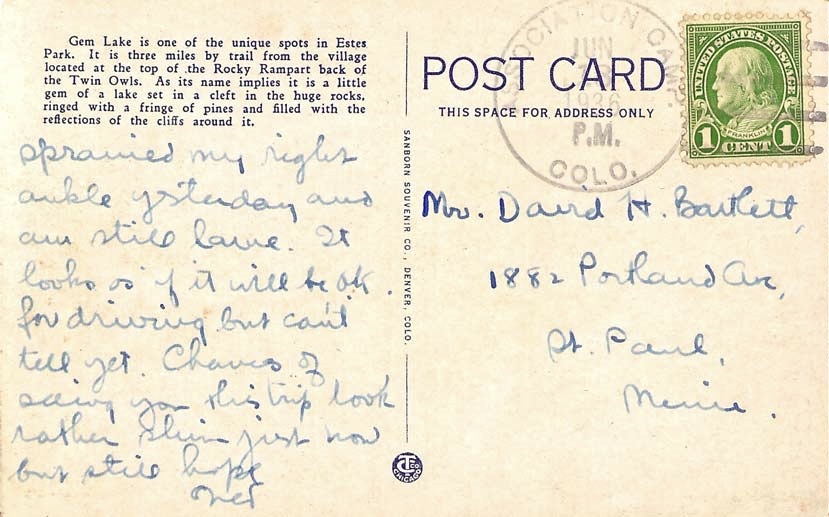 Gem Lake is one of the unique spots in Estes
Park. It is three miles by trail from the village
located at the top of the Rocky Rampart back of
the Twin Owls. As its name implies it is a little
gem of a lake set in a cleft in the huge rocks,
ringed with a fringe of pines and filled with the
reflections of the cliffs around it.
sprained my right
ankle yesterday and
am still lame. It
looks as if it will be ok.
for driving but can't
tell yet. Chances of
seeing you this trip look
rather slim just now
but still hope
SANBORN SOUVENIR CO., DENVER, COLO.
CT CO
CHICAGO
POST CARD
THIS SPACE FOR ADDRESS ONLY
ASSOCIATION CAMP
JUN
1936
P.M.
COLO.
UNITED STATES POSTAGE
FRANKLIN
1 CENT 1
Mr. David H. Bartlett,
1882 Portland Ave,
St. Paul,
Minn.